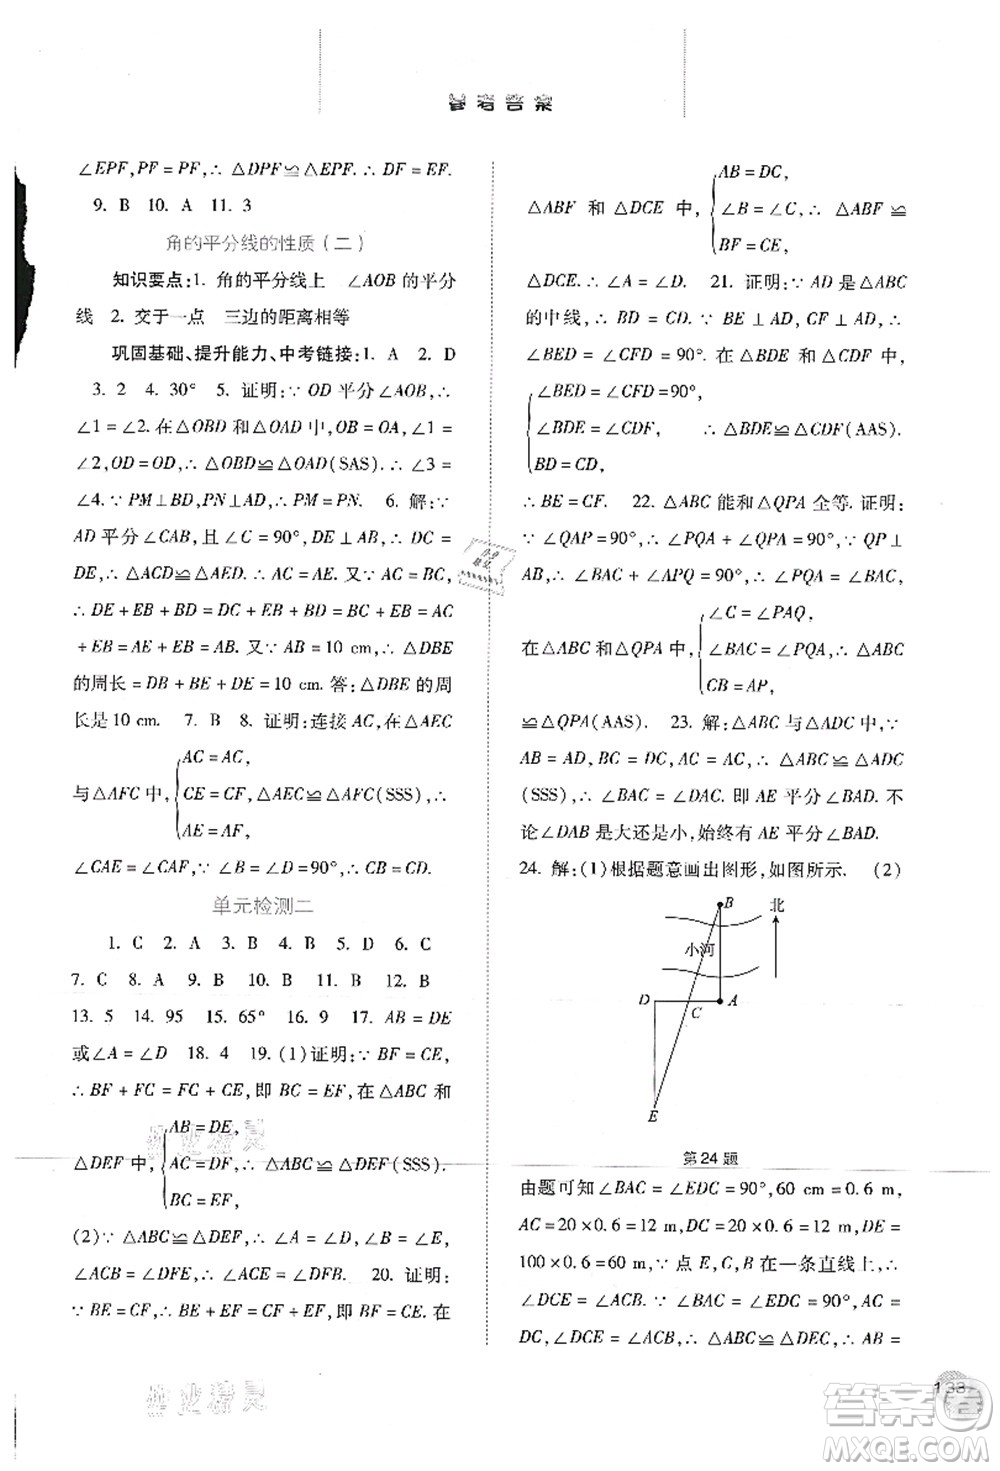 参考答案
∠EPF,PF = PF,∴ △DPF≌△EPF.∴ DF = EF.
9. B 10. A 11. 3
角的平分线的性质(二)
知识要点:1. 角的平分线上 ∠AOB 的平分
线 2. 交于一点 三边的距离相等
巩固基础、提升能力、中考链接:1. A 2. D
3. 2 4. 30° 5. 证明:∵ OD 平分∠AOB,∴
∠1 = ∠2. 在△OBD 和△OAD 中,OB = OA,∠1 =
∠2,OD = OD,∴ △OBD≌△OAD(SAS).∴ ∠3 =
∠4.∵ PM⊥BD,PN⊥AD,∴ PM = PN. 6. 解:∵
AD 平分∠CAB,∠C = 90°,DE ⊥ AB,∴ DC =
DE,∴ △ACD≌△AED. ∴ AC = AE. ∵ AC = BC,
∴ DE + EB + BD = DC + EB + BD = BC + EB = AC
+ EB = AE + EB = AB. 又∵ AB = 10 cm,∴ △DBE
的周长 = DB + BE + DE = 10 cm. 答:△DBE 的周
长是 10 cm. 7. B 8. 证明:连接 AC,在△AEC
与△AFC 中,
AC = AC,
CE = CF,△AEC≌△AFC(SSS),∴
AE = AF,
∠CAE = ∠CAF. ∵ ∠B = ∠D = 90°,∴ CB = CD.
单元检测二
1. C 2. A 3. B 4. B 5. D 6. C
7. C 8. A 9. B 10. B 11. B 12. B
13. 5 14. 95 15. 65° 16. 9 17. AB = DE
或∠A = ∠D 18. 4 19. (1)证明:∵ BF = CE,
∴ BF + FC = FC + CE,即 BC = EF,在△ABC 和
△DEF 中,
AB = DE,
AC = DF,∴ △ABC≌△DEF(SSS).
BC = EF,
(2)∵ △ABC ≌ △DEF,∴ ∠B = ∠E,
∠ACB = ∠DFE,∴ ∠ACE = ∠DFB. 20. 证明:
∵ BE = CF,∴ BE + EF = CF + EF,即 BF = CE. 在
△ABF 和△DCE 中,
AB = DC,
∠B = ∠C,∴ △ABF ≌
BF = CE,
△DCE.∴ ∠A = ∠D. 21. 证明:∵ AD 是△ABC
的中线,∴ BD = CD.∵ BE ⊥ AD,CF ⊥ AD,∴
∠BED = ∠CFD = 90°. 在△BDE 和△CDF 中,
∠BED = ∠CFD = 90°,
∠BDE = ∠CDF, ∴ △BDE≌△CDF(AAS).
BD = CD,
∴ BE = CF. 22. △ABC 能和△QPA 全等. 证明:
∵ ∠QAP = 90°,∴ ∠PQA + ∠APQ = 90°. ∵ QP⊥
AB,∴ ∠BAC + ∠APQ = 90°.∴ ∠PQA = ∠BAC,
在△ABC 和△QPA 中,
∠C = ∠PAQ,
∠BAC = ∠PQA,∴ △ABC
CB = AP,
≌△QPA(AAS). 23. 解:△ABC 与△ADC 中,∵
AB = AD,BC = DC,AC = AC,∴ △ABC ≌ △ADC
(SSS),∴ ∠BAC = ∠DAC. 即 AE 平分∠BAD. 不
论∠DAB 是大还是小,始终有 AE 平分∠BAD.
24. 解:(1)根据题意画出图形,如图所示. (2)
B
北
小河
D
C
A
E
第 24 题
由题可知∠BAC = ∠EDC = 90°,60 cm = 0. 6 m,
AC = 20 × 0. 6 = 12 m,DC = 20 × 0. 6 = 12 m,DE =
100 × 0. 6 = 60 m,∵ 点 E,C,B 在一条直线上,∴
∠DCE = ∠ACB. ∵ ∠BAC = ∠EDC = 90°,AC =
DC,∠DCE = ∠ACB,∴ △ABC≌△DEC,∴ AB =
133
答案圈
MXQE.COM